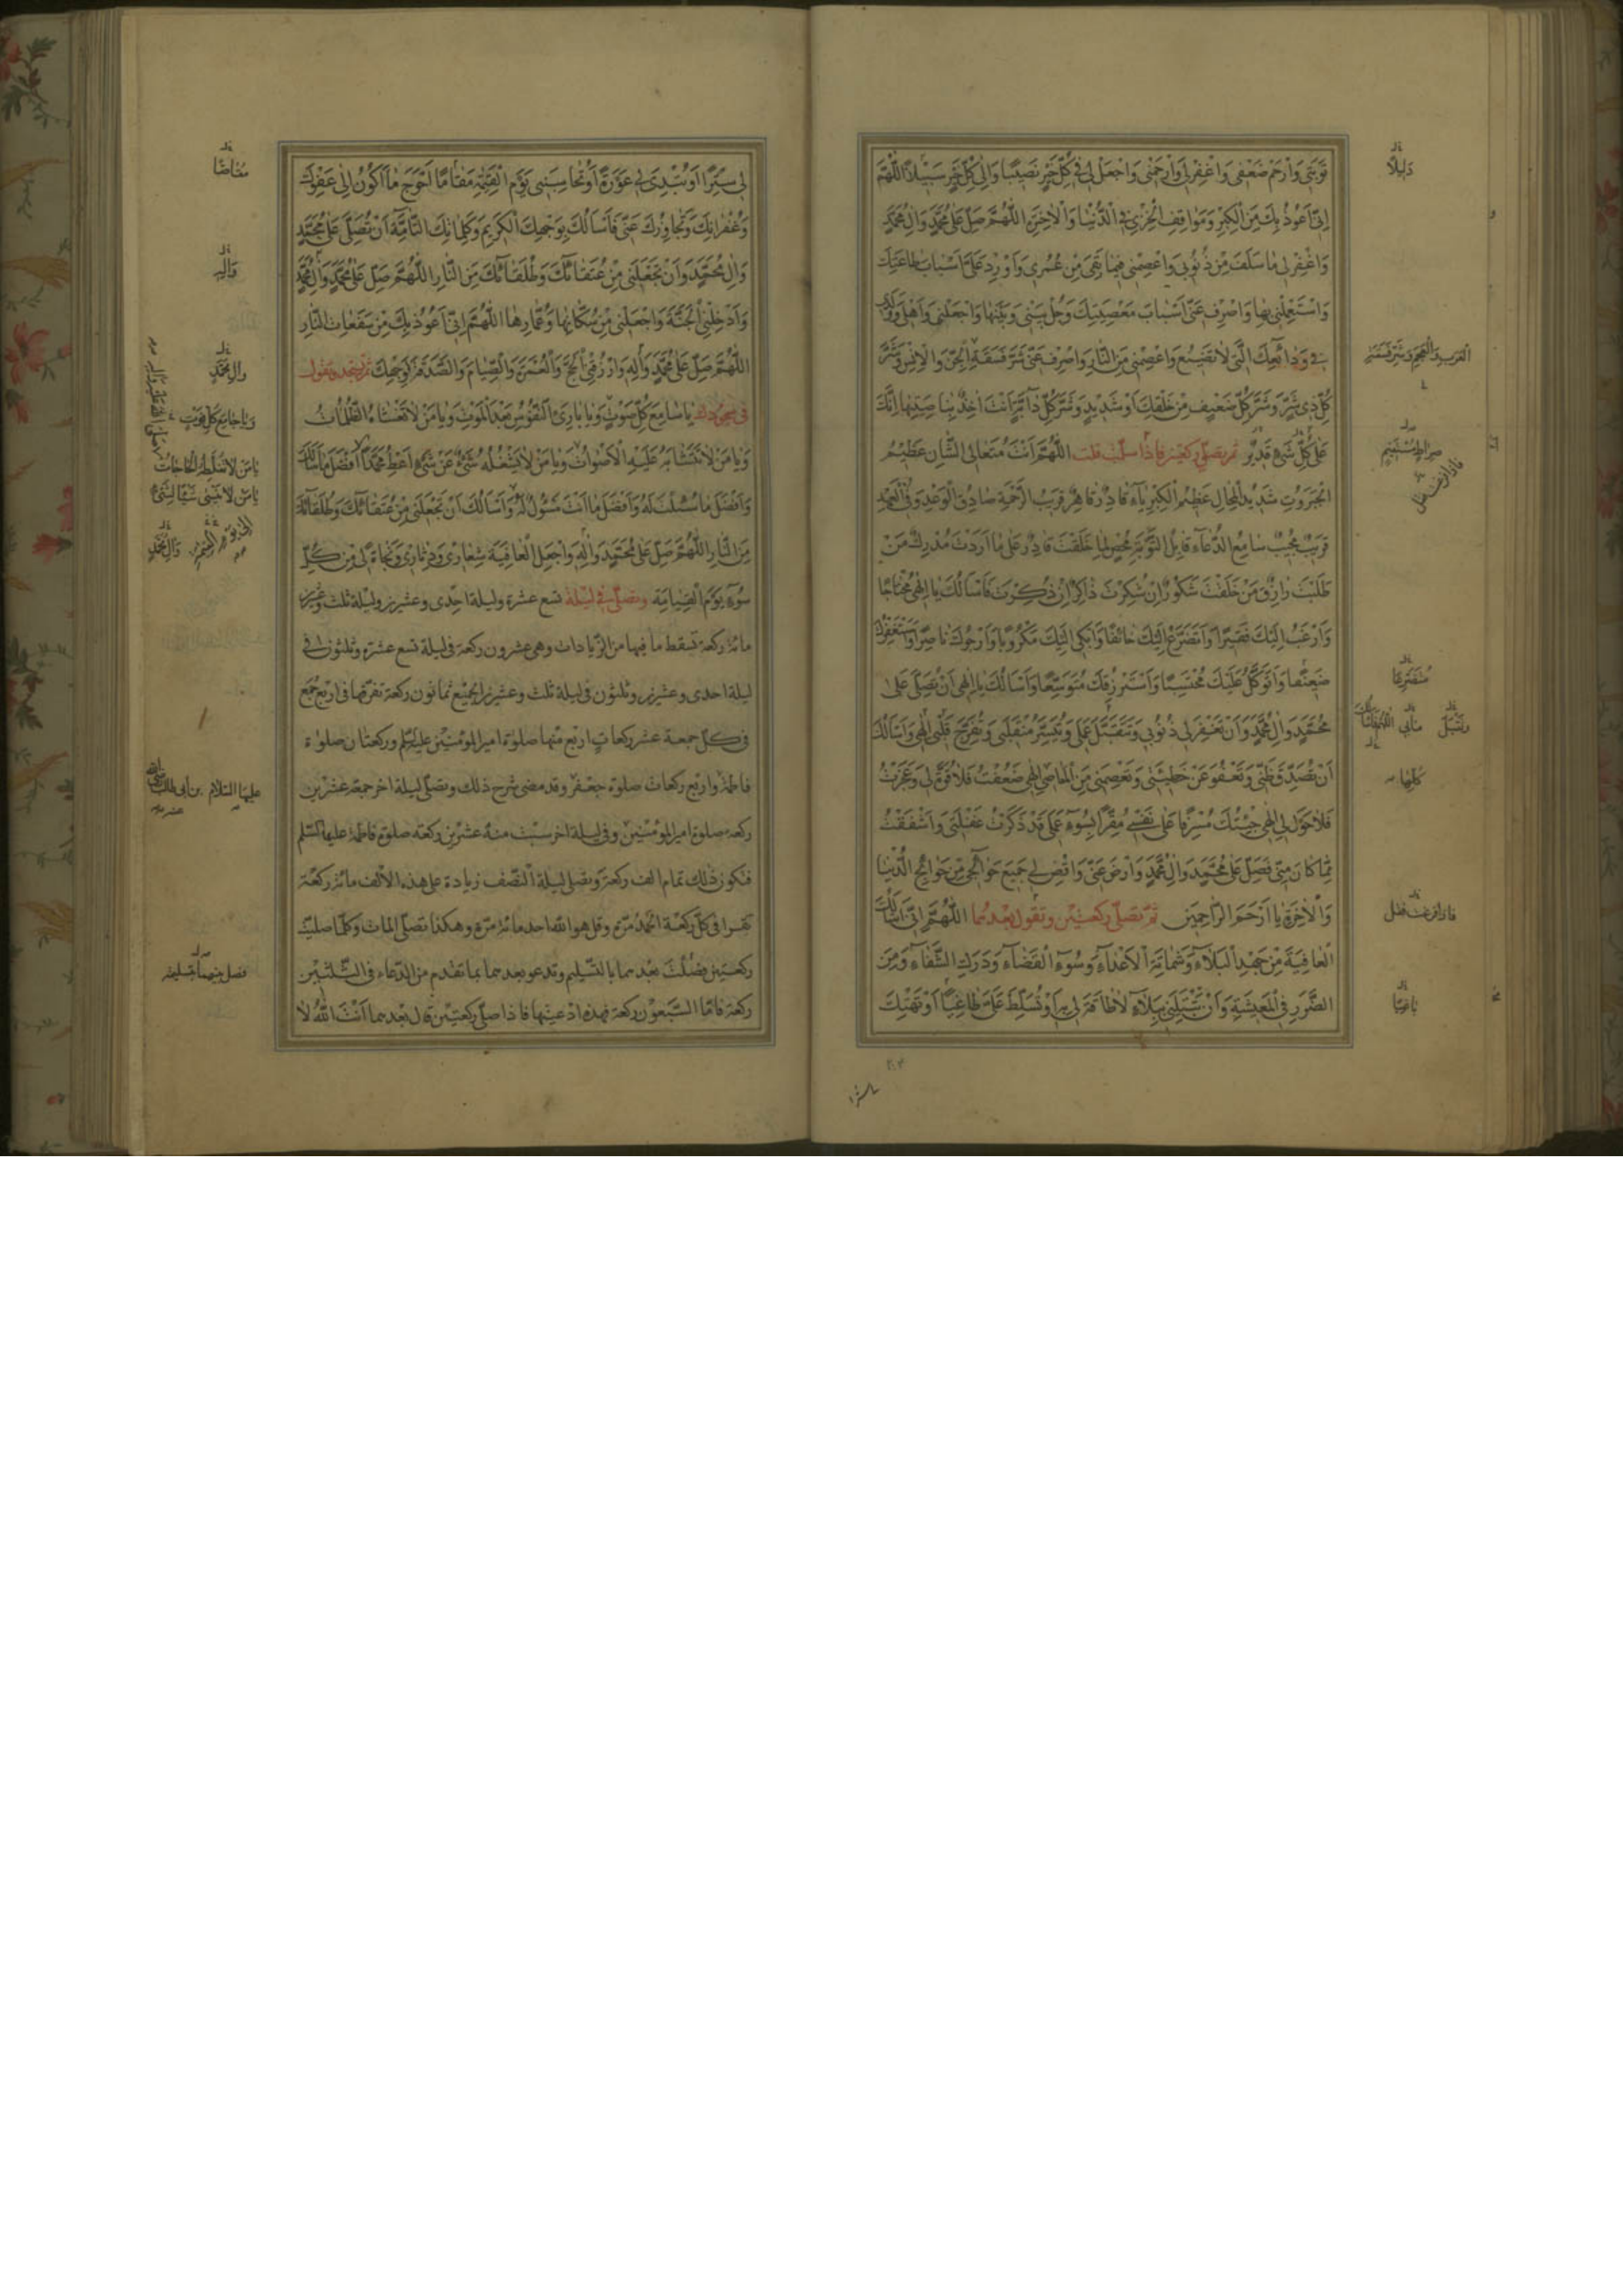 تَوْبَتي وَارْحَمْ ضَعْفي وَاغْفِرْ لي وَارْحَمْني وَاجْعَلْ لي في كُلِّ خَيْرٍ نَصيبًا وَاِلى كُلِّ خَيْرٍ سَبيلاً اَللّهُمَّ
اِنّي اَعُوذُ بِكَ مِنَ الْكِبْرِ وَمَواقِفِ الْخِزْيِ في الدُّنْيا وَالْاخِرَةِ اللّهُمَّ صَلِّ عَلى مُحَمَّدٍ وَالِ مُحَمَّدٍ
وَاغْفِرْ لي ما سَلَفَ مِنْ ذُنُوبي وَاعْصِمْني فيما بَقِيَ مِنْ عُمُري وَاَوْرِدْ عَلَيَّ اَسْبابَ طاعَتِكَ
وَاسْتَعْمِلْني بِها وَاصْرِفْ عَنّي اَسْبابَ مَعْصِيَتِكَ وَحُلْ بَيْني وَبَيْنَها وَاجْعَلْني وَاَهْلي وَوُلْدي
في وَدائِعِكَ الَّتي لا تَضيعُ وَاعْصِمْني مِنَ النّارِ وَاصْرِفْ عَنّي شَرَّ فَسَقَةِ الْجِنِّ وَالْاِنْسِ وَشَرَّ
كُلِّ ذي شَرٍّ وَشَرَّ كُلِّ ضَعيفٍ مِنْ خَلْقِكَ اَوْ شَديدٍ وَشَرَّ كُلِّ دآبَّةٍ اَنْتَ اخِذٌ بِناصِيَتِها اِنَّكَ
عَلى كُلِّ شَيْءٍ قَديرٌ ثم تصلّي ركعتين فاذا سلّمت قلت اَللّهُمَّ اَنْتَ مُتَعالِي الشَّانِ عَظيمُ
الْجَبَرُوتِ شَديدُ الْمِحالِ عَظيمُ الْكِبْرِيآءِ قادِرٌ قاهِرٌ قَريبُ الرَّحْمَةِ صادِقُ الْوَعْدِ وَفِيُّ الْعَهْدِ
قَريبٌ مُجيبٌ سامِعُ الدُّعآءِ قابِلُ التَّوْبَةِ مُحْصٍ لِما خَلَقْتَ قادِرٌ عَلى ما اَرَدْتَ مُدْرِكٌ مَنْ
طَلَبْتَ رازِقٌ مَنْ خَلَقْتَ شَكُورٌ اِنْ شُكِرْتَ ذاكِرٌ اِنْ ذُكِرْتَ فَاَسْاَلُكَ يا اِلهي مُحْتاجًا
وَاَرْغَبُ اِلَيْكَ فَقيرًا وَاَتَضَرَّعُ اِلَيْكَ خائِفًا وَاَبْكي اِلَيْكَ مَكْرُوبًا وَاَرْجُوكَ ناصِرًا وَاَسْتَغْفِرُكَ
ضَعيفًا وَاَتَوَكَّلُ عَلَيْكَ مُحْتَسِبًا وَاَسْتَرْزِقُكَ مُتَوَسِّعًا وَاَسْاَلُكَ يا اِلهي اَنْ تُصَلِّيَ عَلى
مُحَمَّدٍ وَالِ مُحَمَّدٍ وَاَنْ تَغْفِرَ لي ذُنُوبي وَتَتَقَبَّلَ عَمَلي وَتُيَسِّرَ مُنْقَلَبي وَتُفَرِّجَ قَلْبي اِلهي وَاَسْاَلُكَ
اَنْ تُصَدِّقَ ظَنّي وَتَعْفُوَ عَنْ خَطيئَتي وَتَعْصِمَني مِنَ الْمَعاصي اِلهي ضَعُفْتُ فَلا قُوَّةَ لي وَعَجَزْتُ
فَلا حَوْلَ لي اِلهي جِئْتُكَ مُسْرِفًا عَلى نَفْسي مُقِرًّا بِسُوءِ عَمَلي قَدْ ذَكَرْتُ غَفْلَتي وَاَشْفَقْتُ
مِمّا كانَ مِنّي فَصَلِّ عَلى مُحَمَّدٍ وَالِ مُحَمَّدٍ وَارْضَ عَنّي وَاقْضِ لي جَميعَ حَوائِجي مِنْ حَوائِجِ الدُّنْيا
وَالْاخِرَةِ يا اَرْحَمَ الرّاحِمينَ ثمّ تصلّي ركعتين وتقول بعدهما اَللّهُمَّ اِنّي اَسْاَلُكَ
الْعافِيَةَ مِنْ جَهْدِ الْبَلآءِ وَشَماتَةِ الْاَعْدآءِ وَسُوءِ الْقَضآءِ وَدَرَكِ الشَّقآءِ وَمِنَ
الضَّرَرِ فِي الْمَعيشَةِ وَاَنْ تَبْتَلِيَني بِبَلآءٍ لا طاقَةَ لي بِهِ اَوْ تُسَلِّطَ عَلَيَّ طاغِيًا اَوْ تَهْتِكَ
دَليلاً
الْعَرَبِ وَالْعَجَمِ وَشَرَّ فَسَقَةِ
صِراطٍ مُسْتَقيمٍ
فاذا فرغت فقل
مُتَضَرِّعًا
وَتَقْبَلَ
كُلِّها
فاذا فرغت فقل
باغِيًا
لي سِتْرًا اَوْ تُبْدِيَ لي عَوْرَةً اَوْ تُحاسِبَني يَوْمَ الْقِيمَةِ مَقامًا اَحْوَجَ ما اَكُونُ اِلى عَفْوِكَ
وَغُفْرانِكَ وَتَجاوُزِكَ عَنّي فَاَسْاَلُكَ بِوَجْهِكَ الْكَريمِ وَكَلِماتِكَ التّامَّةِ اَنْ تُصَلِّيَ عَلى مُحَمَّدٍ
وَالِ مُحَمَّدٍ وَاَنْ تَجْعَلَني مِنْ عُتَقائِكَ وَطُلَقائِكَ مِنَ النّارِ اللّهُمَّ صَلِّ عَلى مُحَمَّدٍ وَالِ مُحَمَّدٍ
وَاَدْخِلْنِي الْجَنَّةَ وَاجْعَلْني مِنْ سُكّانِها وَعُمّارِها اللّهُمَّ اِنّي اَعُوذُ بِكَ مِنْ سَفَعاتِ النّارِ
اللّهُمَّ صَلِّ عَلى مُحَمَّدٍ وَالِهِ وَارْزُقْنِي الْحَجَّ وَالْعُمْرَةَ وَالصِّيامَ وَالصَّدَقَةَ لِوَجْهِكَ ثم تسجد وتقول
في سجودك يا سامِعَ كُلِّ صَوْتٍ وَيا بارِئَ النُّفُوسِ بَعْدَ الْمَوْتِ وَيا مَنْ لا تَغْشاهُ الظُّلُماتُ
وَيا مَنْ لا تَتَشابَهُ عَلَيْهِ الْاَصْواتُ وَيا مَنْ لا يَشْغَلُهُ شَيْءٌ عَنْ شَيْءٍ اَعْطِ مُحَمَّدًا اَفْضَلَ ما سَاَلَكَ
وَاَفْضَلَ ما سُئِلْتَ لَهُ وَاَفْضَلَ ما اَنْتَ مَسْئُولٌ لَهُ وَاَسْاَلُكَ اَنْ تَجْعَلَني مِنْ عُتَقائِكَ وَطُلَقائِكَ
مِنَ النّارِ اللّهُمَّ صَلِّ عَلى مُحَمَّدٍ وَالِهِ وَاجْعَلِ الْعافِيَةَ شِعاري وَدِثاري وَنَجاةً لي مِنْ كُلِّ
سُوءٍ يَوْمَ الْقِيامَةِ وتصلّي في ليلة تسع عشرة وليلة احدى وعشرين وليلة ثلث وعشرين
مائة ركعة تسقط ما فيها من الزّيادات وهي عشرون ركعة في ليلة تسع عشرة وثلثون في
ليلة احدى وعشرين وثلثون في ليلة ثلث وعشرين الجميع ثمانون ركعة تفرّقها في اربع جمع
في كلّ جمعة عشر ركعات اربع منها صلوة امير المؤمنين عليه السّلم وركعتان صلوة
فاطمة واربع ركعات صلوة جعفر وقد مضى شرح ذلك وتصلّي ليلة اخر جمعة عشرين
ركعة صلوة امير المؤمنين وفي ليلة اخر سبت منه عشرين ركعة صلوة فاطمة عليها السّلم
فتكون ذلك تمام الف ركعة وتصلي ليلة النّصف زيادة على هذه الالف مائة ركعة
تقرا في كلّ ركعة الحمد مرّة وقل هو الله احد مائة مرّة وهكذا تصلّي المات وكلّما صلّيت
ركعتين فصّلت بعدهما بالتّسليم وتدعو بعدهما بما تقدم من الدّعاء في الثّلثين
ركعة فامّا السّبعون ركعة فهذه ادعيتها فاذا صلّى ركعتين قال بعدهما اَنْتَ اللهُ لا
وَالِهِ
وَالِ مُحَمَّدٍ
وَيا جامِعَ كُلِّ فَوْتٍ
يا مَنْ لا تُغَلِّطُهُ الْحاجاتُ
يا مَنْ لا يَنْسى شَيْئًا لِشَيْءٍ
وَالِ مُحَمَّدٍ
عليها السّلام